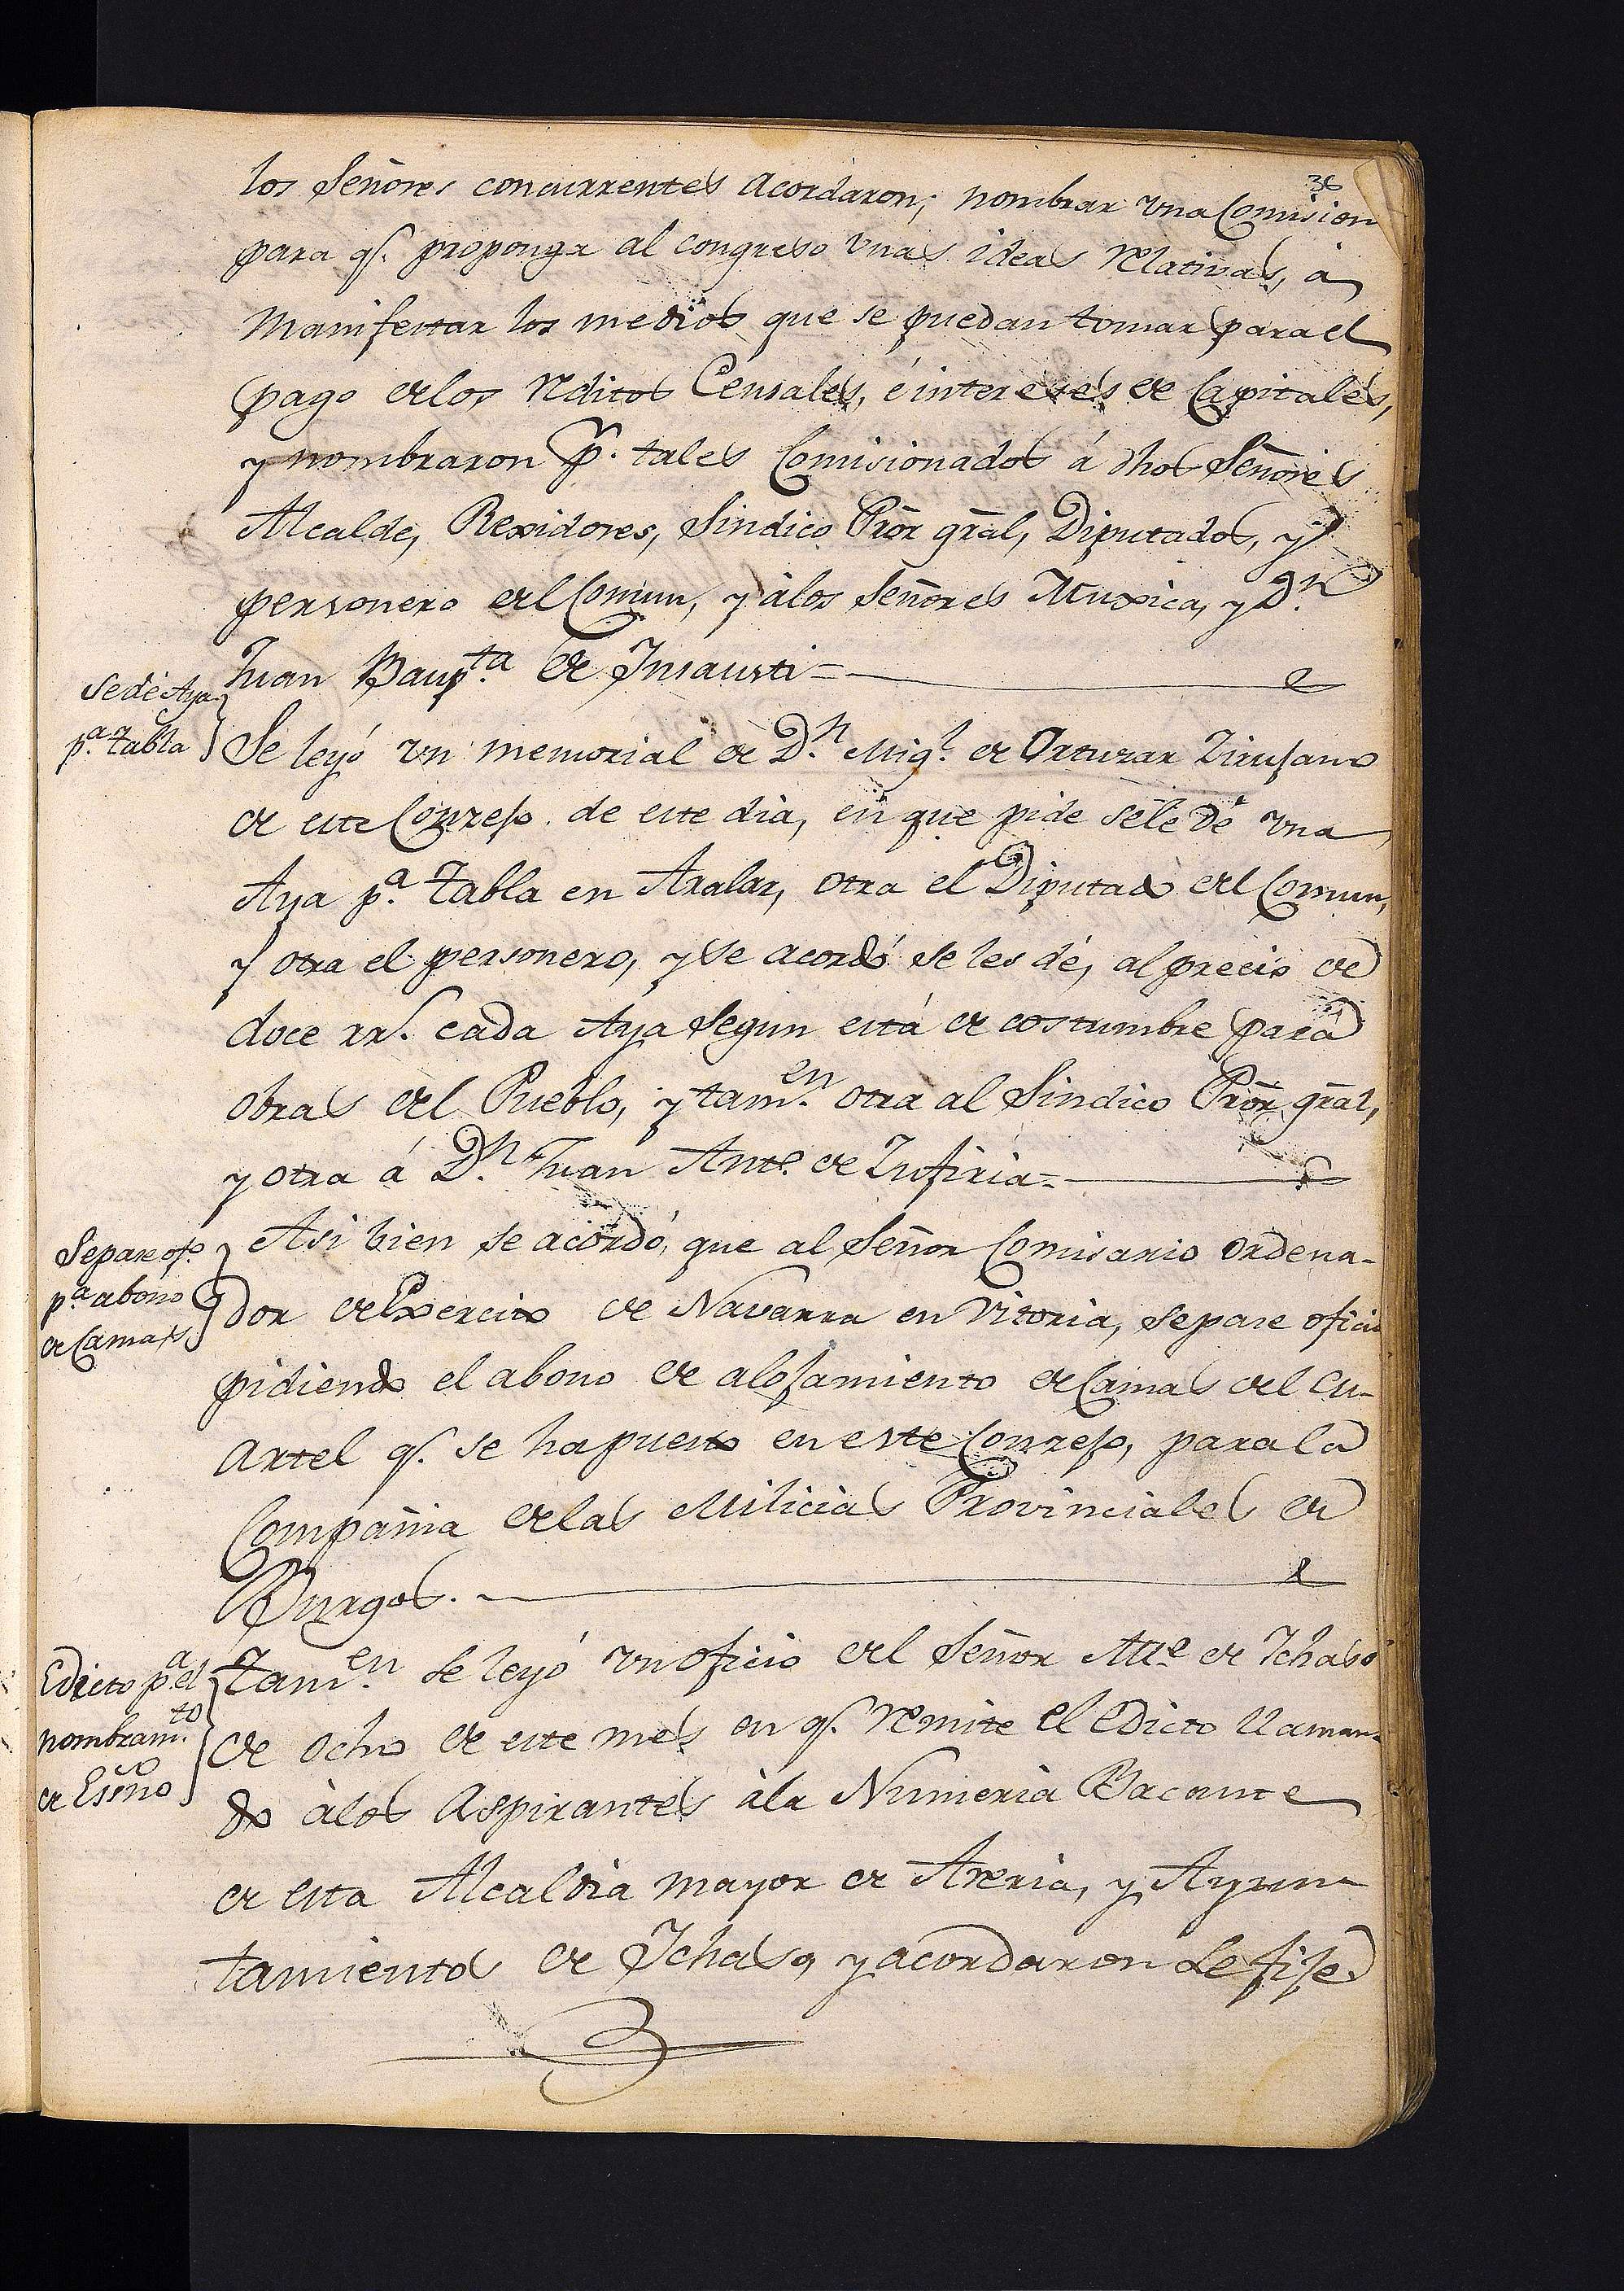 36
los Señores concurrentes acordaron; nombrar una Comision
para q.^e proponga al congreso unas ideas relativas, á
Manifestar los medios que se puedan tomar para el
pago de los reditos Censales, é intereses de Capitales,
y nombraron p.^r tales Comisionados á dhos Señores
Alcalde, Rexidores, Sindico Pror gral, Diputados, y
personero del Comun, y á los Señores Muxica, y D.^n
Juan Baup.^ta de Insausti=
Se dé Aya
p.^a tabla
Se leyó un memorial de D.^n Mig.^l de Ortuzar Zirujano
de este Conzejo de este dia, en que pide se le dé una
Aya p.^a tabla en Aralar, otra el Diputado del Comun,
y otra el personero, y se acordó se les dé, al precio de
doce rr.^s cada Aya segun está de costumbre para
obras del Pueblo, y tam.^en otra al Sindico Pror gral,
y otra á D.^n Juan Ant.^o de
Se pase of.^o
p.^a abono
de Camas
Asi bien se acordó, que al Señor Comisario ordena-
dor de Exercito de Navarra en Vitoria, se pase oficio
pidiendo el abono de alojamiento de Camas del cu-
artel q.^e se ha puesto en este Conzejo, para la
Compañia de las Milicias Provinciales de
Burgos.
Edicto p.^a el
nombram.^to
de Essno
Tam.^en se leyó un oficio del Señor Alle de Ichaso
de ocho de este mes en q.^e remite el Edicto llaman-
do á los Aspirantes á la Numeria Bacante
de esta Alcaldia mayor de Areria, y Ayun-
tamiento de Ichaso, y acordaron se fije